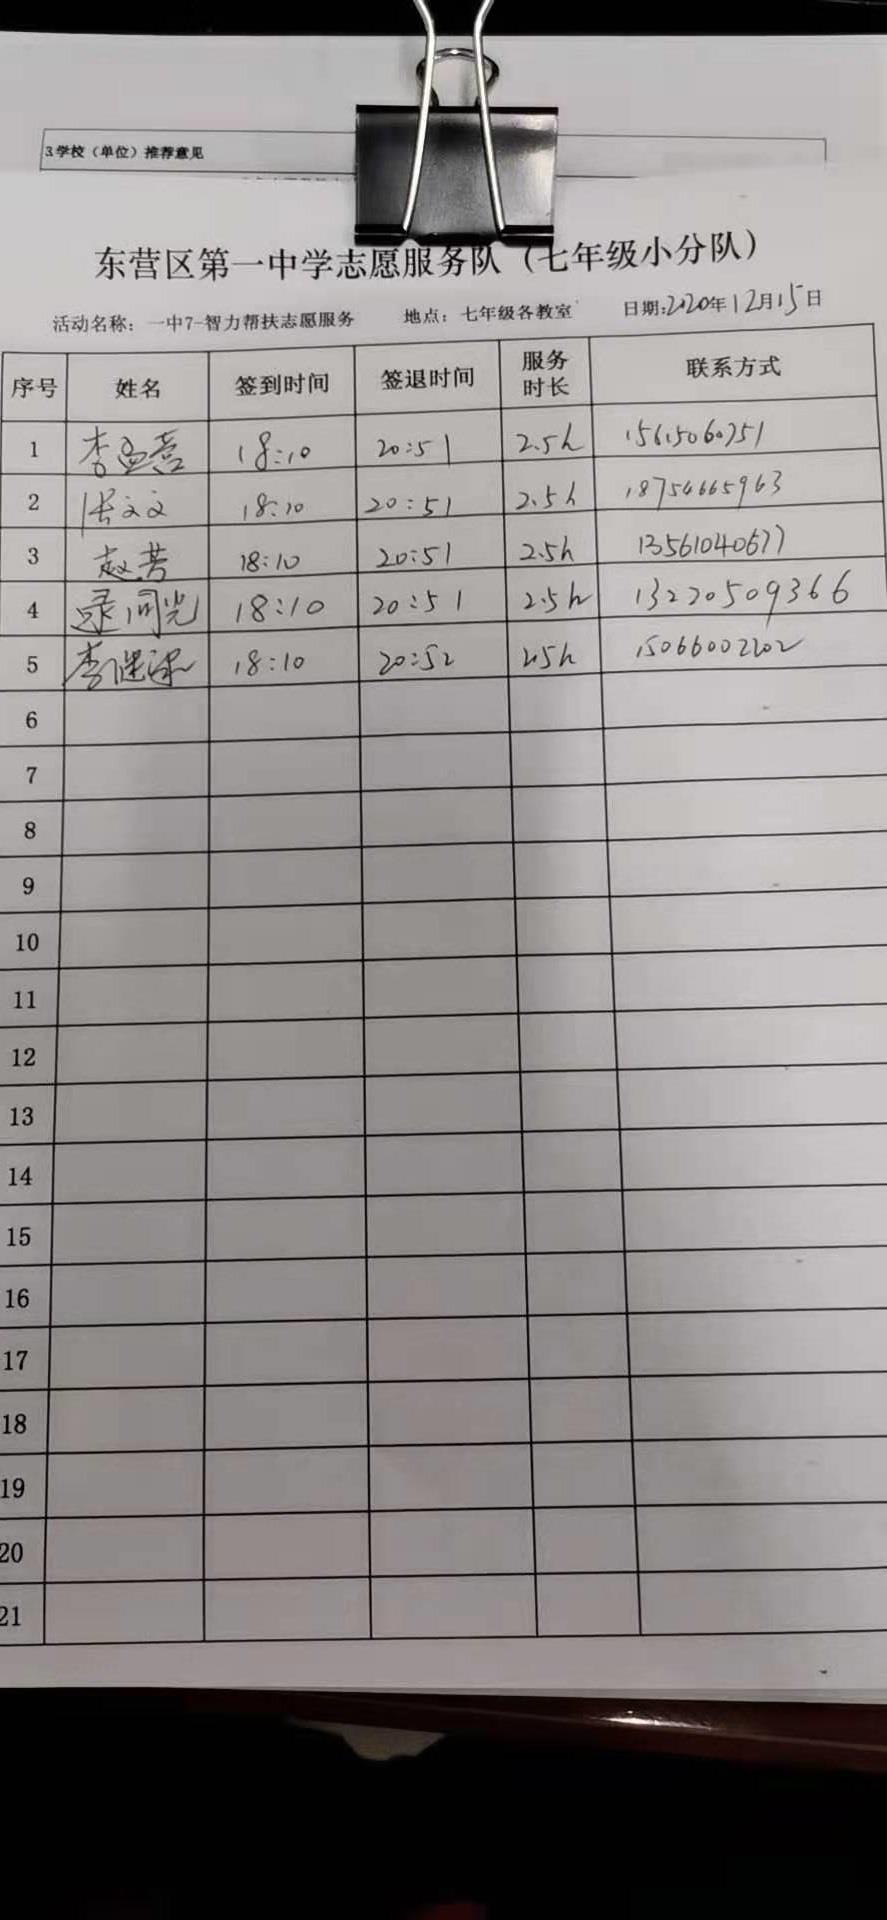 3.学校（单位）推荐意见
东营区第一中学志愿服务队（七年级小分队）
活动名称：一中7-智力帮扶志愿服务 地点：七年级各教室 日期:2020年12月15日
序号 姓名 签到时间 签退时间 服务时长 联系方式
1 李孟熹 18:10 20:51 2.5h 15615060751
2 张文文 18:10 20:51 2.5h 18754665963
3 赵芳 18:10 20:51 2.5h 13561040677
4 18:10 20:51 2.5h 13220509366
5 18:10 20:52 2.5h 15066002202
6
7
8
9
10
11
12
13
14
15
16
17
18
19
20
21